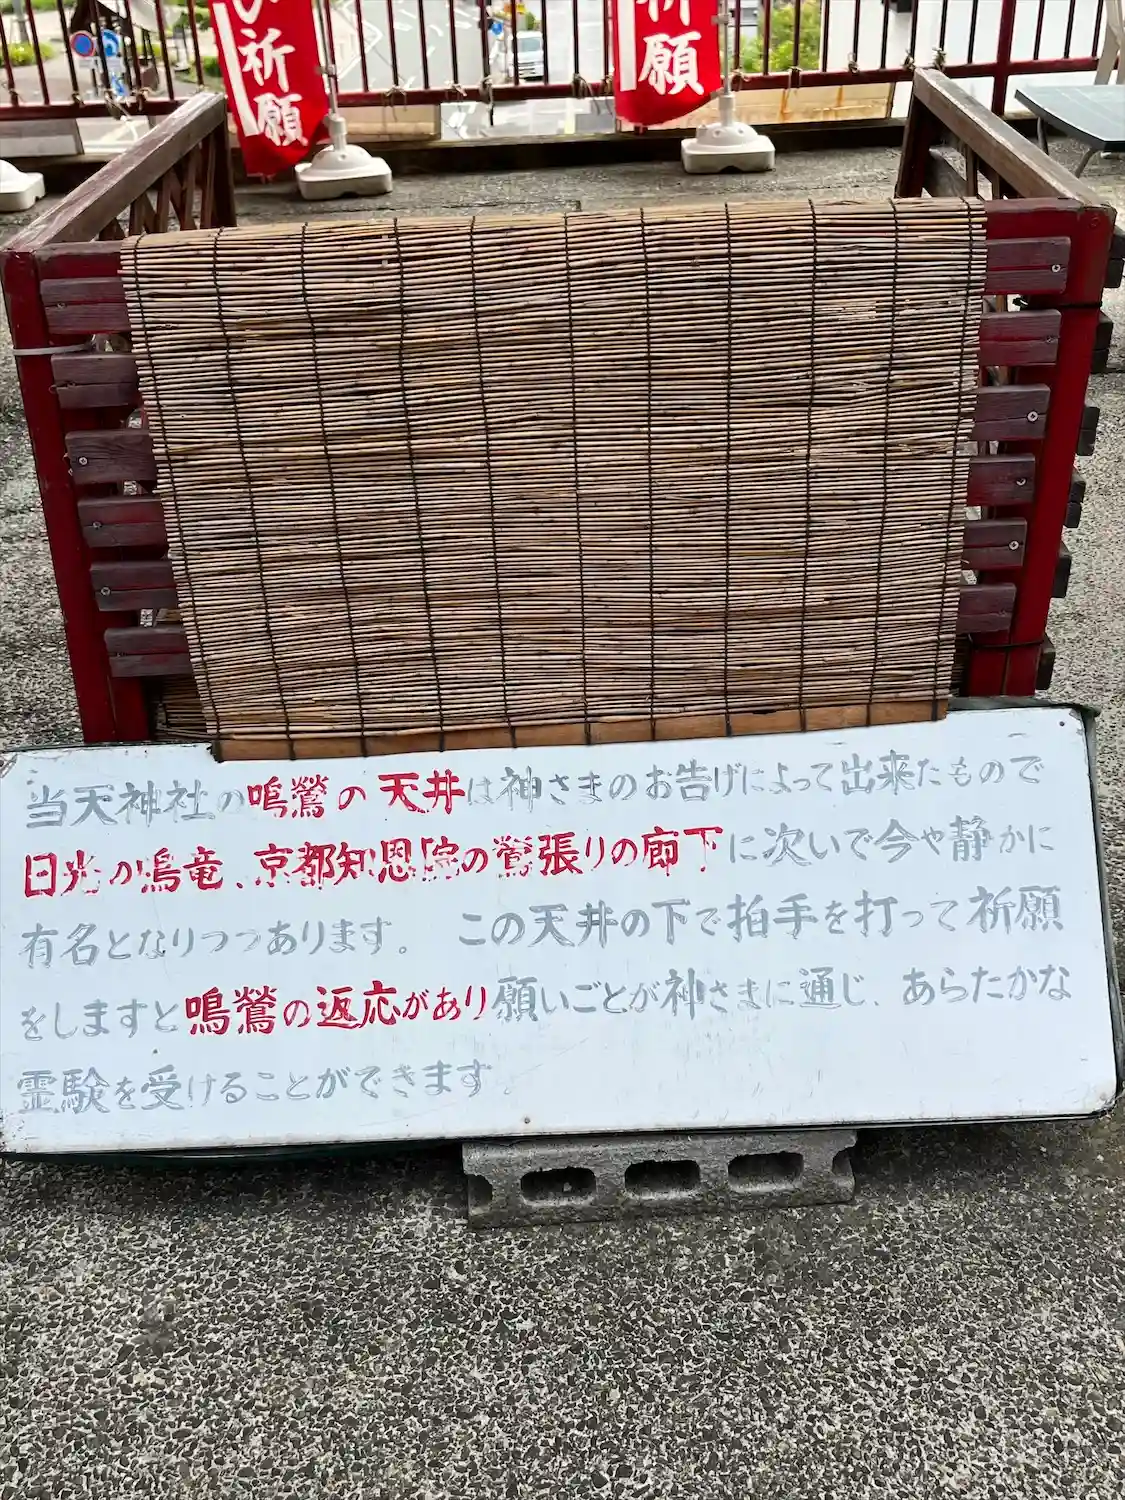 い祈願
祈願
当天神社の鳴鶯の天井は神さまのお告げによって出来たもので
日光の鳴竜、京都知恩院の鶯張りの廊下に次いで今や静かに
有名となりつつあります。 この天井の下で拍手を打って祈願
をしますと鳴鶯の返応があり願いごとが神さまに通じ、あらたかな
霊験を受けることができます。